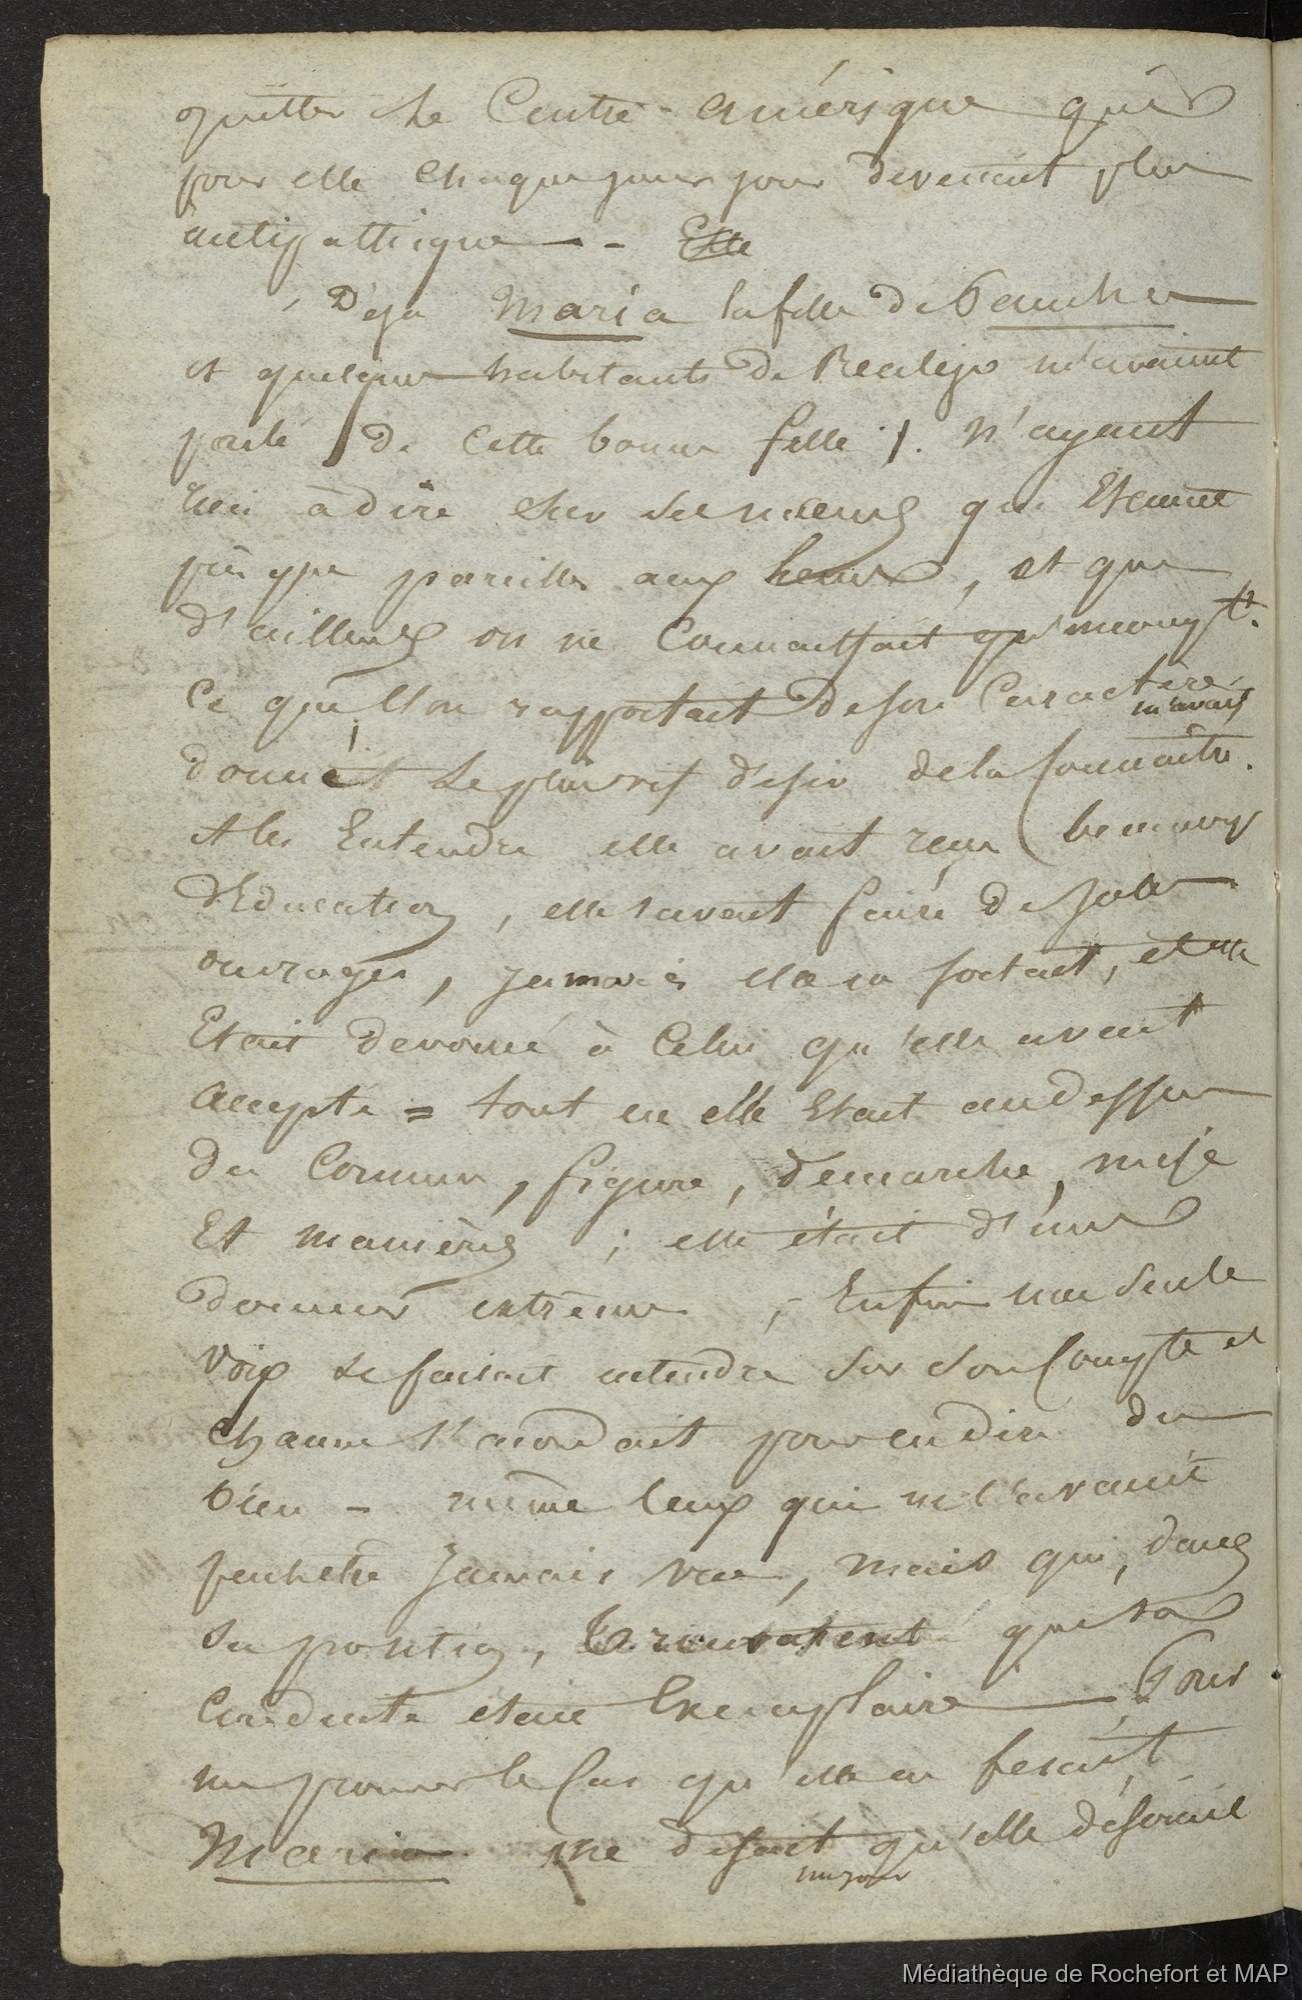 quitter le Centre-amérique qui
pour elle chaque jour devenait plus
antipatique - Elle
Déja Maria la fille de Pancha
et quelques habitants de Realejo m'avaient
parlé de cette bonne fille). N'ayant
rien à dire sur ses mœurs qui Etaient
presque pareilles aux leurs, et que
d'ailleurs on ne Connaissait
Ce que l'on rapportait de son Caractère
m'avait
donné le plus vif desir de la Connaître.
A les Entendre elle avait reçu beaucoup
d'Education, elle savait faire de jolis
ouvrages, jamais elle ne sortait, et elle
Etait devouée à Celui qu'elle avait
accepté = tout en elle Etait au dessus
du Commun, figure, demarche, mise
Et manières ; elle était d'une
douceur extrême ; Enfin une seule
voix se faisait entendre sur son Compte et
chacun s'acordait pour en dire du
bien - même Ceux qui ne l'avaient
peutetre Jamais vue, mais qui, dans
sa position, trouvaient que sa
Conduite était Exemplaire Pour
me prouver le Cas qu'elle en fesait,
Maria me disait qu'elle désirait
un jour
Médiathèque de Rochefort et MAP